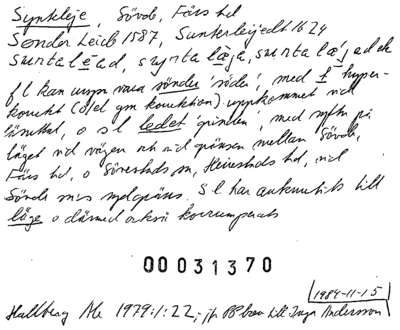 Synkläje, Sövde, Färs hd
Sönder Leið 1587, Sunkerleijedt 1624
suntalèad, synta läga, sunta læjadek
fl kan urspr vara sönder 'söder', med t hyper-
korrekt (o/el gm korrektion) uppkommet vid
, o sl ledet 'grinden', med syftn på
läget vid vägen och vid gränsen mellan Sövde,
Färs hd, o Sövestads sn, Herrestads hd, vid
Sövde sns sydgräns. Sl har anknutits till
läge o därmed också korrumperats
00031370
1984-11-15
Hallberg Ale 1979:1:22; jfr brev till Inga Andersson